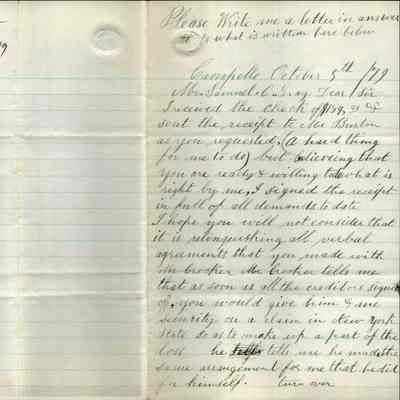 Please Write me a letter in answer
to what is written here below
Campello October 5th /79
Mr Samuel C. Gray Dear Sir
I received the check of $189, &
sent the receipt to Mr Burton
as you requested, (a hard thing
for me to do) but believing that
you are ready & willing to do what is
right by me, I signed the receipt
in full of all demands to date
I hope you will not consider that
it is relinquishing all verbal
agraments that you made with
Mr Crocker Mr Crocker tells me
that as soon as all the creditors signed
off, you would give him & me
security on a claim in New York
state so as to make up a part of the
loss he tells me he made the
same arrangement for me that he did
for himself. turn over